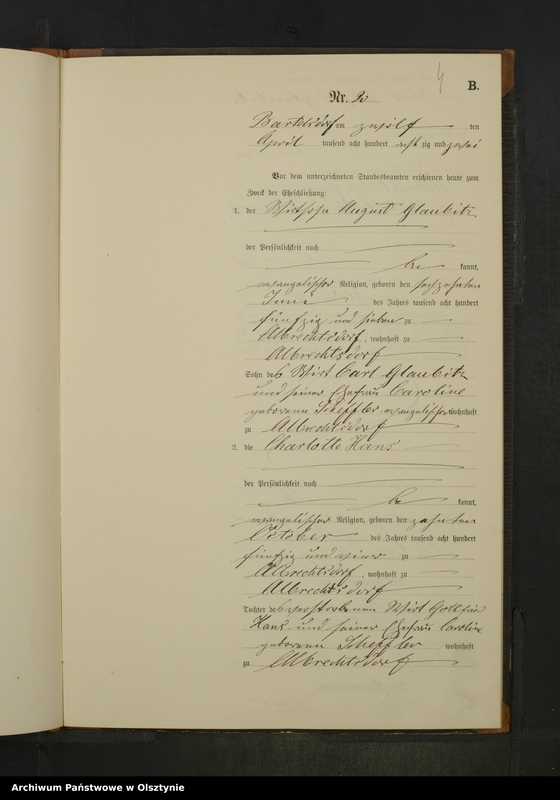 4
B.
Nr. 2
Bartelsdorf am zwölf ten
April tausend acht hundert acht zig und zwei
Vor dem unterzeichneten Standesbeamten erschienen heute zum
Zweck der Eheschließung:
1. der Wirtssohn August Glaubitz
der Persönlichkeit nach
be kannt,
evangelischer Religion, geboren den sechzehnten
Juni des Jahres tausend acht hundert
fünfzig und sieben zu
Albrechtsdorf, wohnhaft zu
Albrechtsdorf
Sohn des Wirt Carl Glaubitz
und seiner Ehefrau Caroline
geborenen Scheffler evangelischer wohnhaft
zu Albrechtsdorf
2. die Charlotte Hans
der Persönlichkeit nach
be kannt,
evangelischer Religion, geboren den zehnten
October des Jahres tausend acht hundert
fünfzig und vier zu
Albrechtsdorf, wohnhaft zu
Albrechtsdorf
Tochter des verstorbenen Wirt Gottfried
Hans und seiner Ehefrau Caroline
geborenen Scheffler wohnhaft
zu Albrechtsdorf
Archiwum Państwowe w Olsztynie